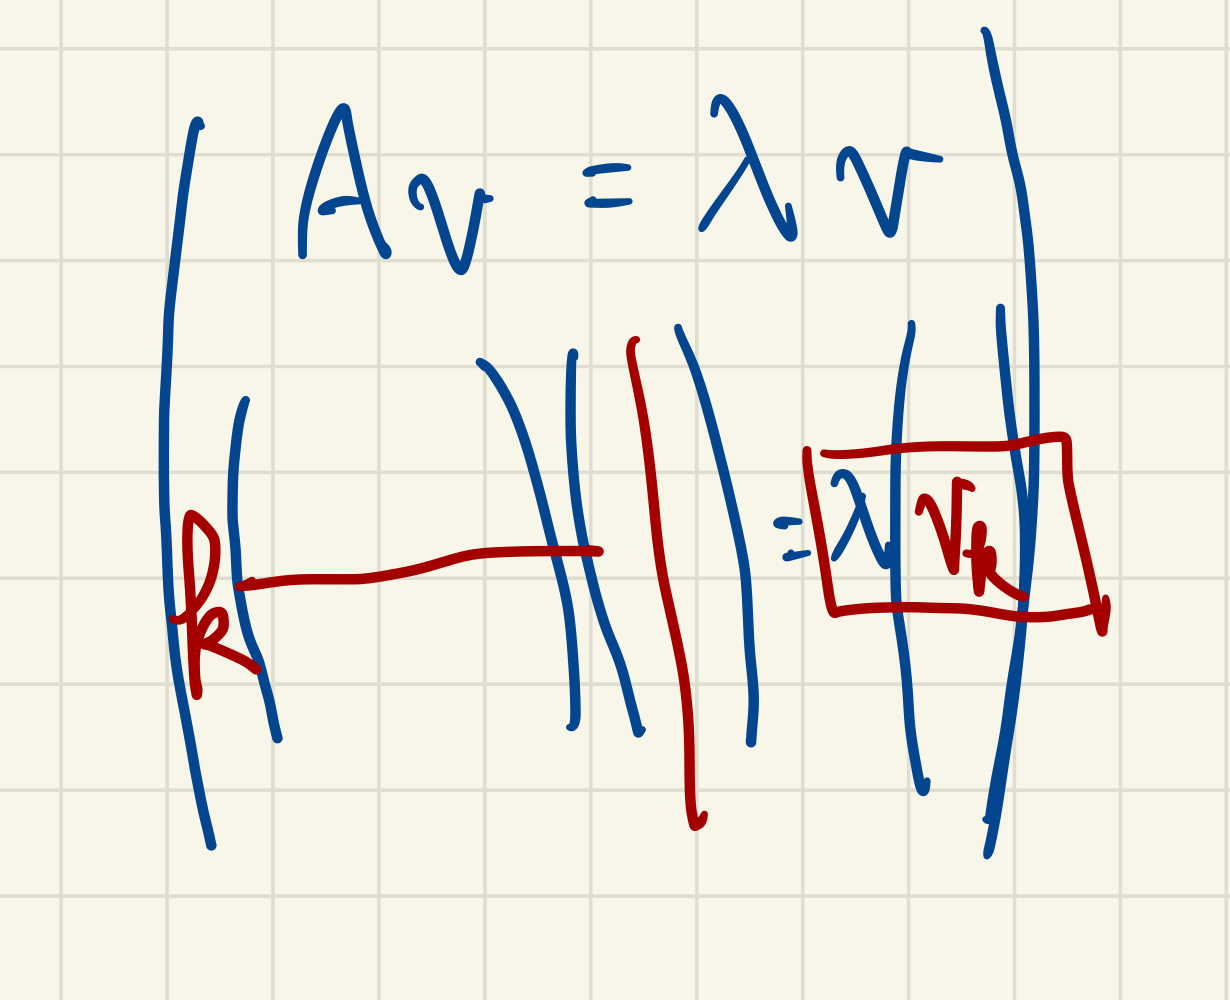 Av = λv
k = λ v_k